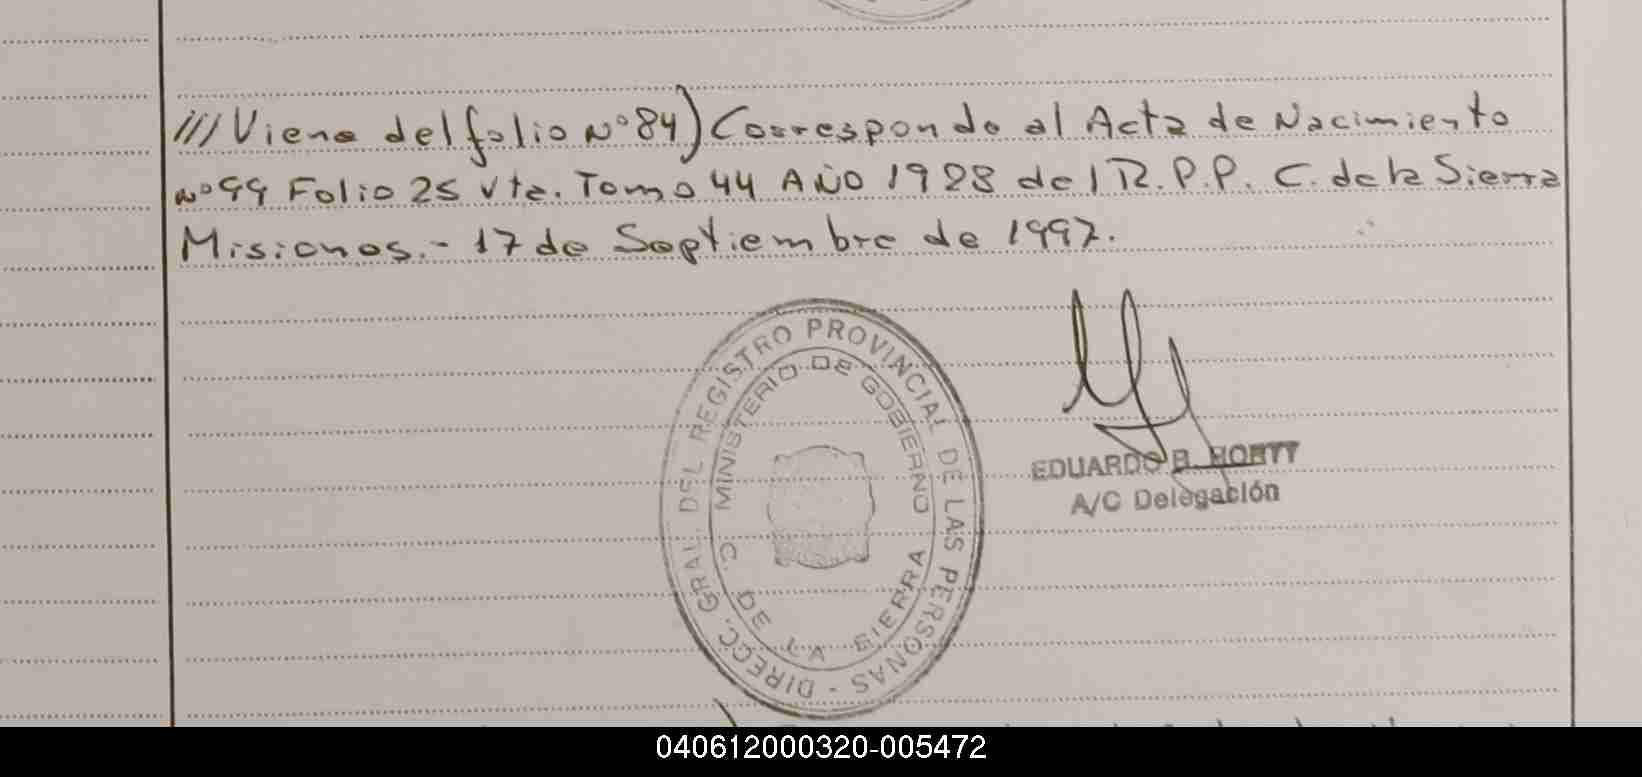 ///Viene del folio Nº 84) Corresponde al Acta de Nacimiento
Nº 99 Folio 25 Vta. Tomo 44 AÑO 1928 del R.P.P. C. de la Sierra
Misiones.- 17 de Septiembre de 1997.
DIRECC. GRAL. DEL REGISTRO PROVINCIAL DE LAS PERSONAS -
MINISTERIO DE GOBIERNO
C. DE LA SIERRA
EDUARDO R. HORTT
A/C Delegación
040612000320-005472